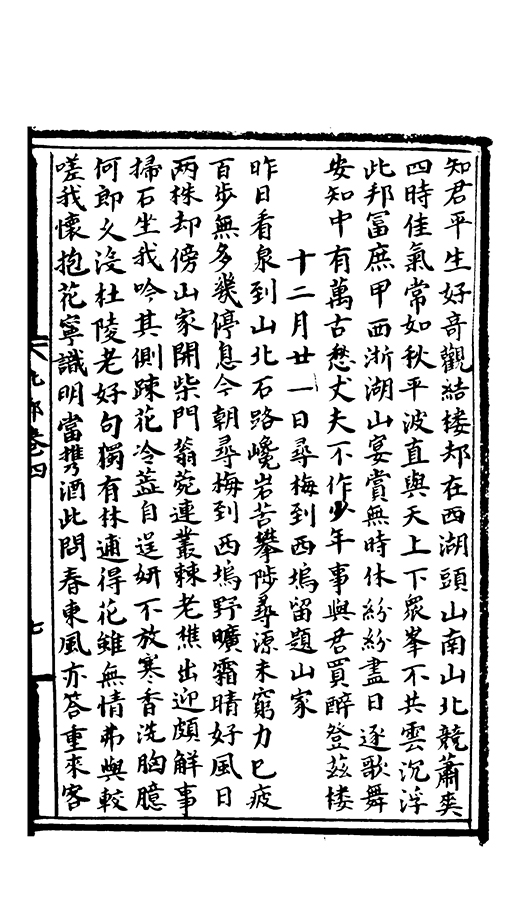 知君平生好奇觀結楼却在西湖頭山南山北競蕭爽
四時佳氣常如秋平波直與天上下衆峯不共雲沉浮
此邦冨庶甲西浙湖山宴賞無時休紛紛盡日逐歌舞
安知中有萬古愁丈夫不作少年事與君買醉登茲楼
十二月廿一日尋梅到西塢留題山家
昨日看泉到山北石路巉岩苦攀陟尋源未窮力已疲
百步無多幾停息今朝尋梅到西塢野曠霜晴好風日
两株却傍山家開柴門蓊菀連叢棘老樵出迎頗解事
掃石坐我吟其側踈花冷蘂自逞妍不放寒香洗胸臆
何郎久没杜陵老好句獨有林逋得花雖無情弗與較
嗟我懷抱花寧識明當攜酒此問春東風亦答重來客
卷四
七